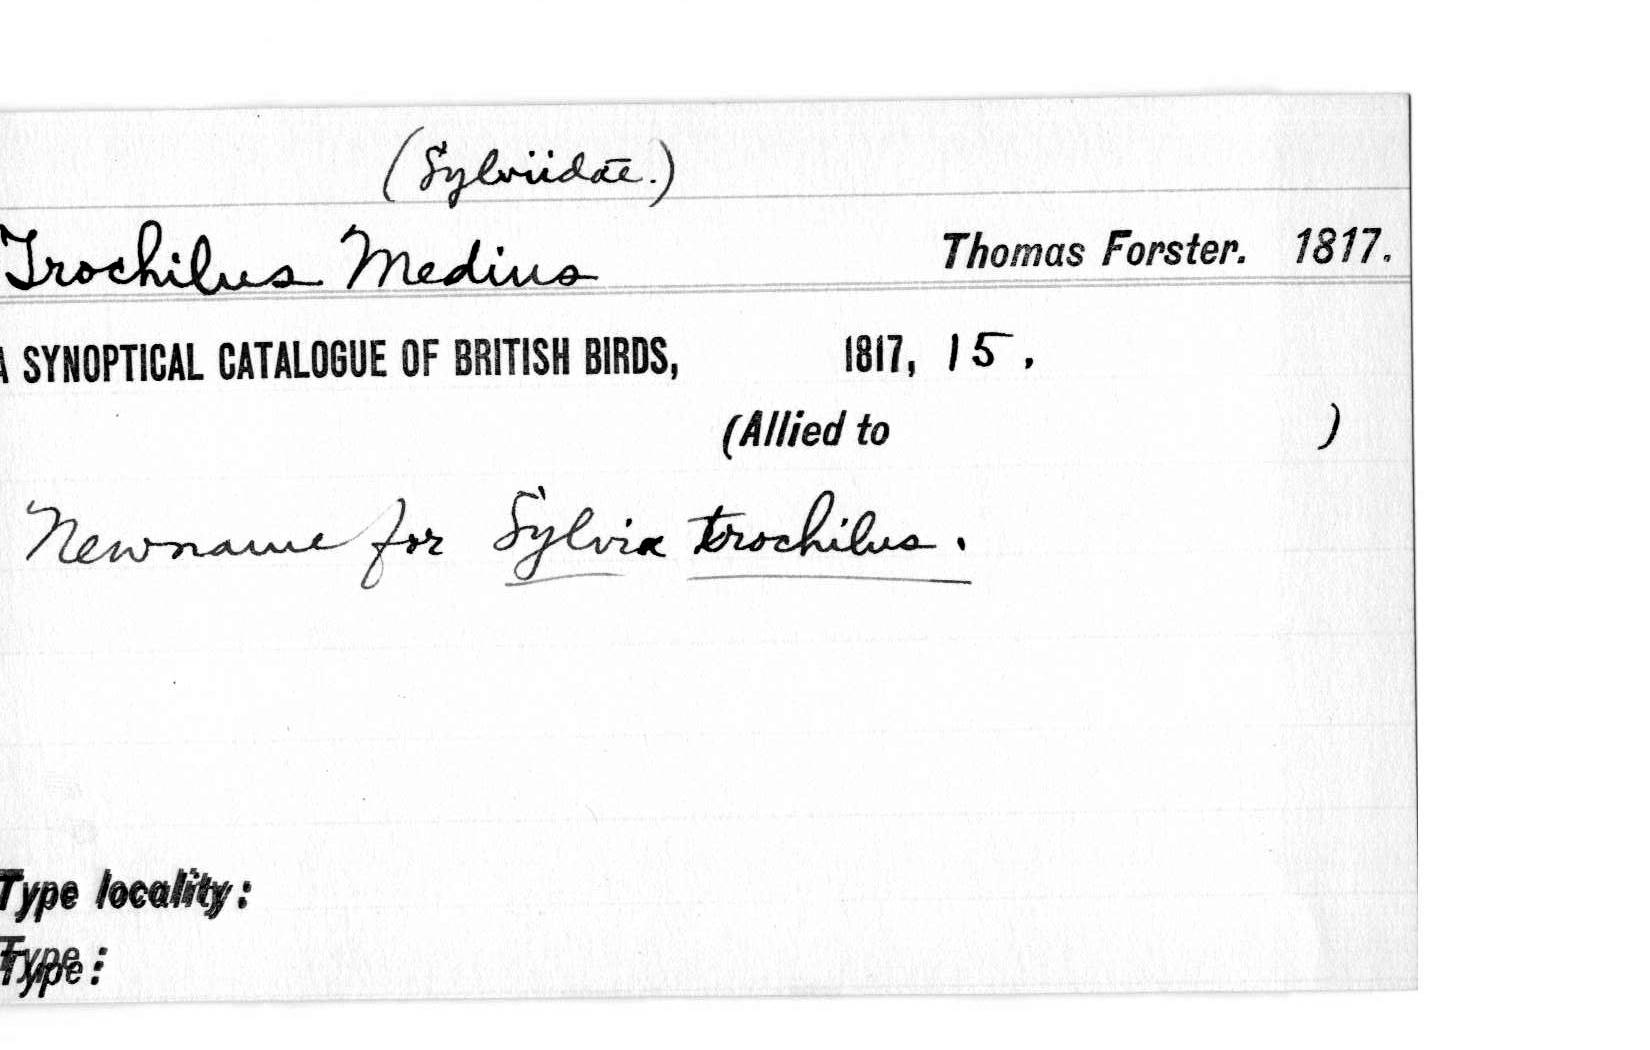 (Sylviidae.)
Trochilus Medius Thomas Forster. 1817.
A SYNOPTICAL CATALOGUE OF BRITISH BIRDS, 1817, 15.
(Allied to )
New name for Sylvia trochilus.
Type locality:
Type: